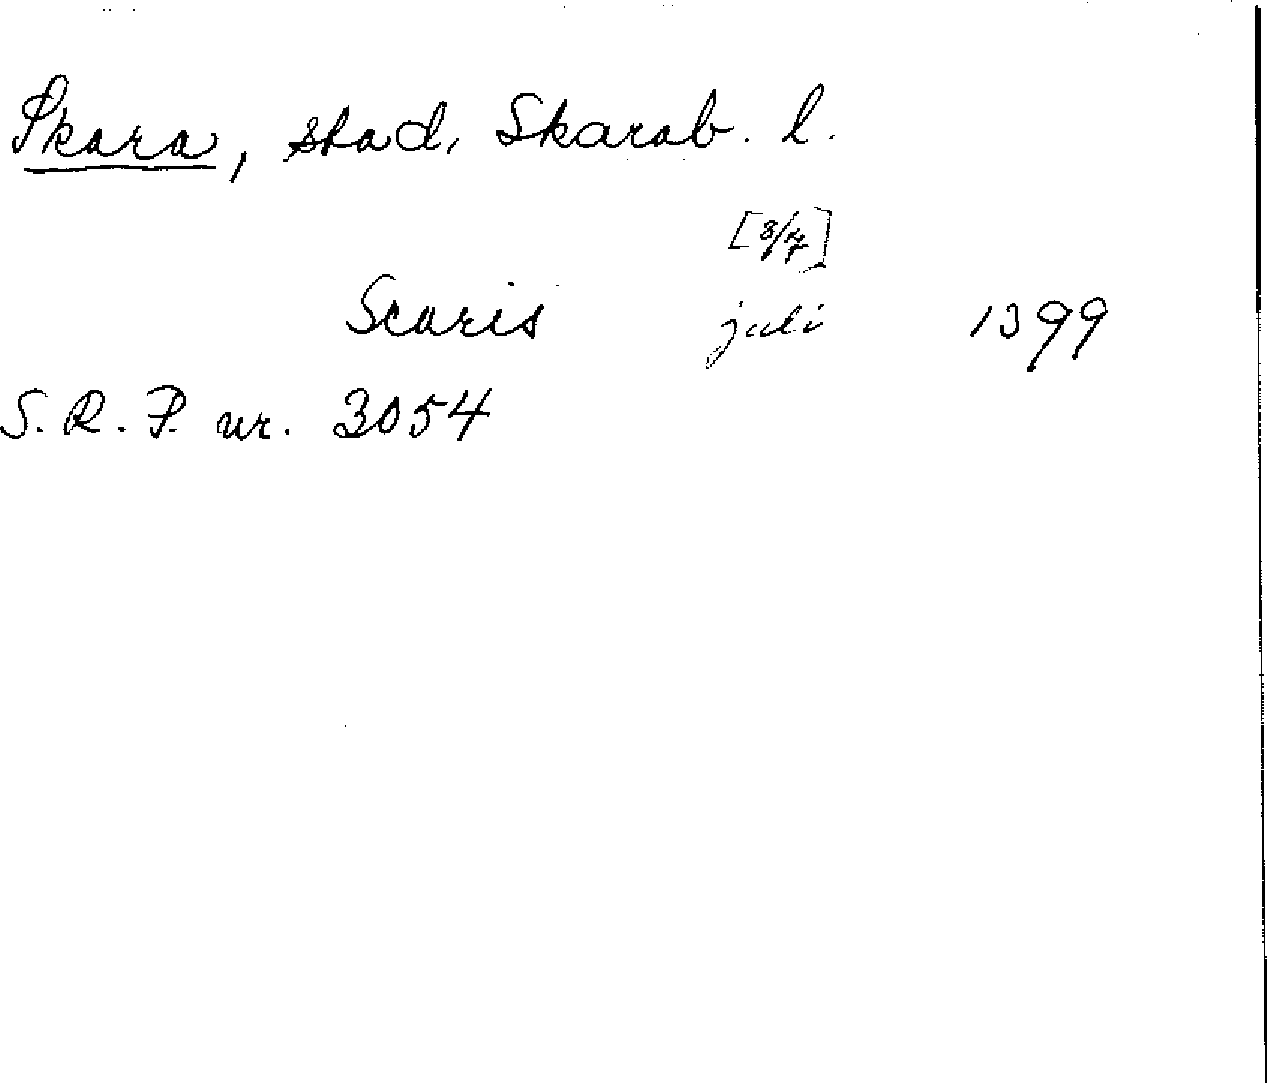 Skara, stad, Skarab. l.
[8/7]
Scaris juli 1399
S.R.P. nr. 3054